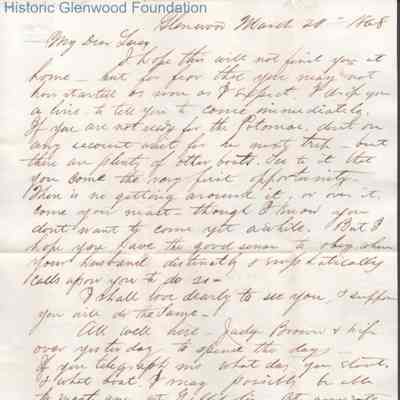 Historic Glenwood Foundation
Glenwood March 20th 1868
My Dear Lucy
I hope this will not find you at
home — but for fear that you may not
have started as soon as I expect I drop you
a line to tell you to come immediately.
If you are not ready for the Potomac don't on
any account wait for her next trip — but
there are plenty of other boats. See to it that
you come the very first opportunity.
There is no getting around it, or over it,
come you must — though I know you
don't want to come yet awhile. But I
hope you have the good sense to obey when
your husband distinctly & emphatically
calls upon you to do so —
I shall love dearly to see you, & suppose
you will do the same —
All well here — Judge Brown & wife
over yesterday to spend the day —
If you telegraph me what day you start
& what boat I may possibly be able
to meet you at